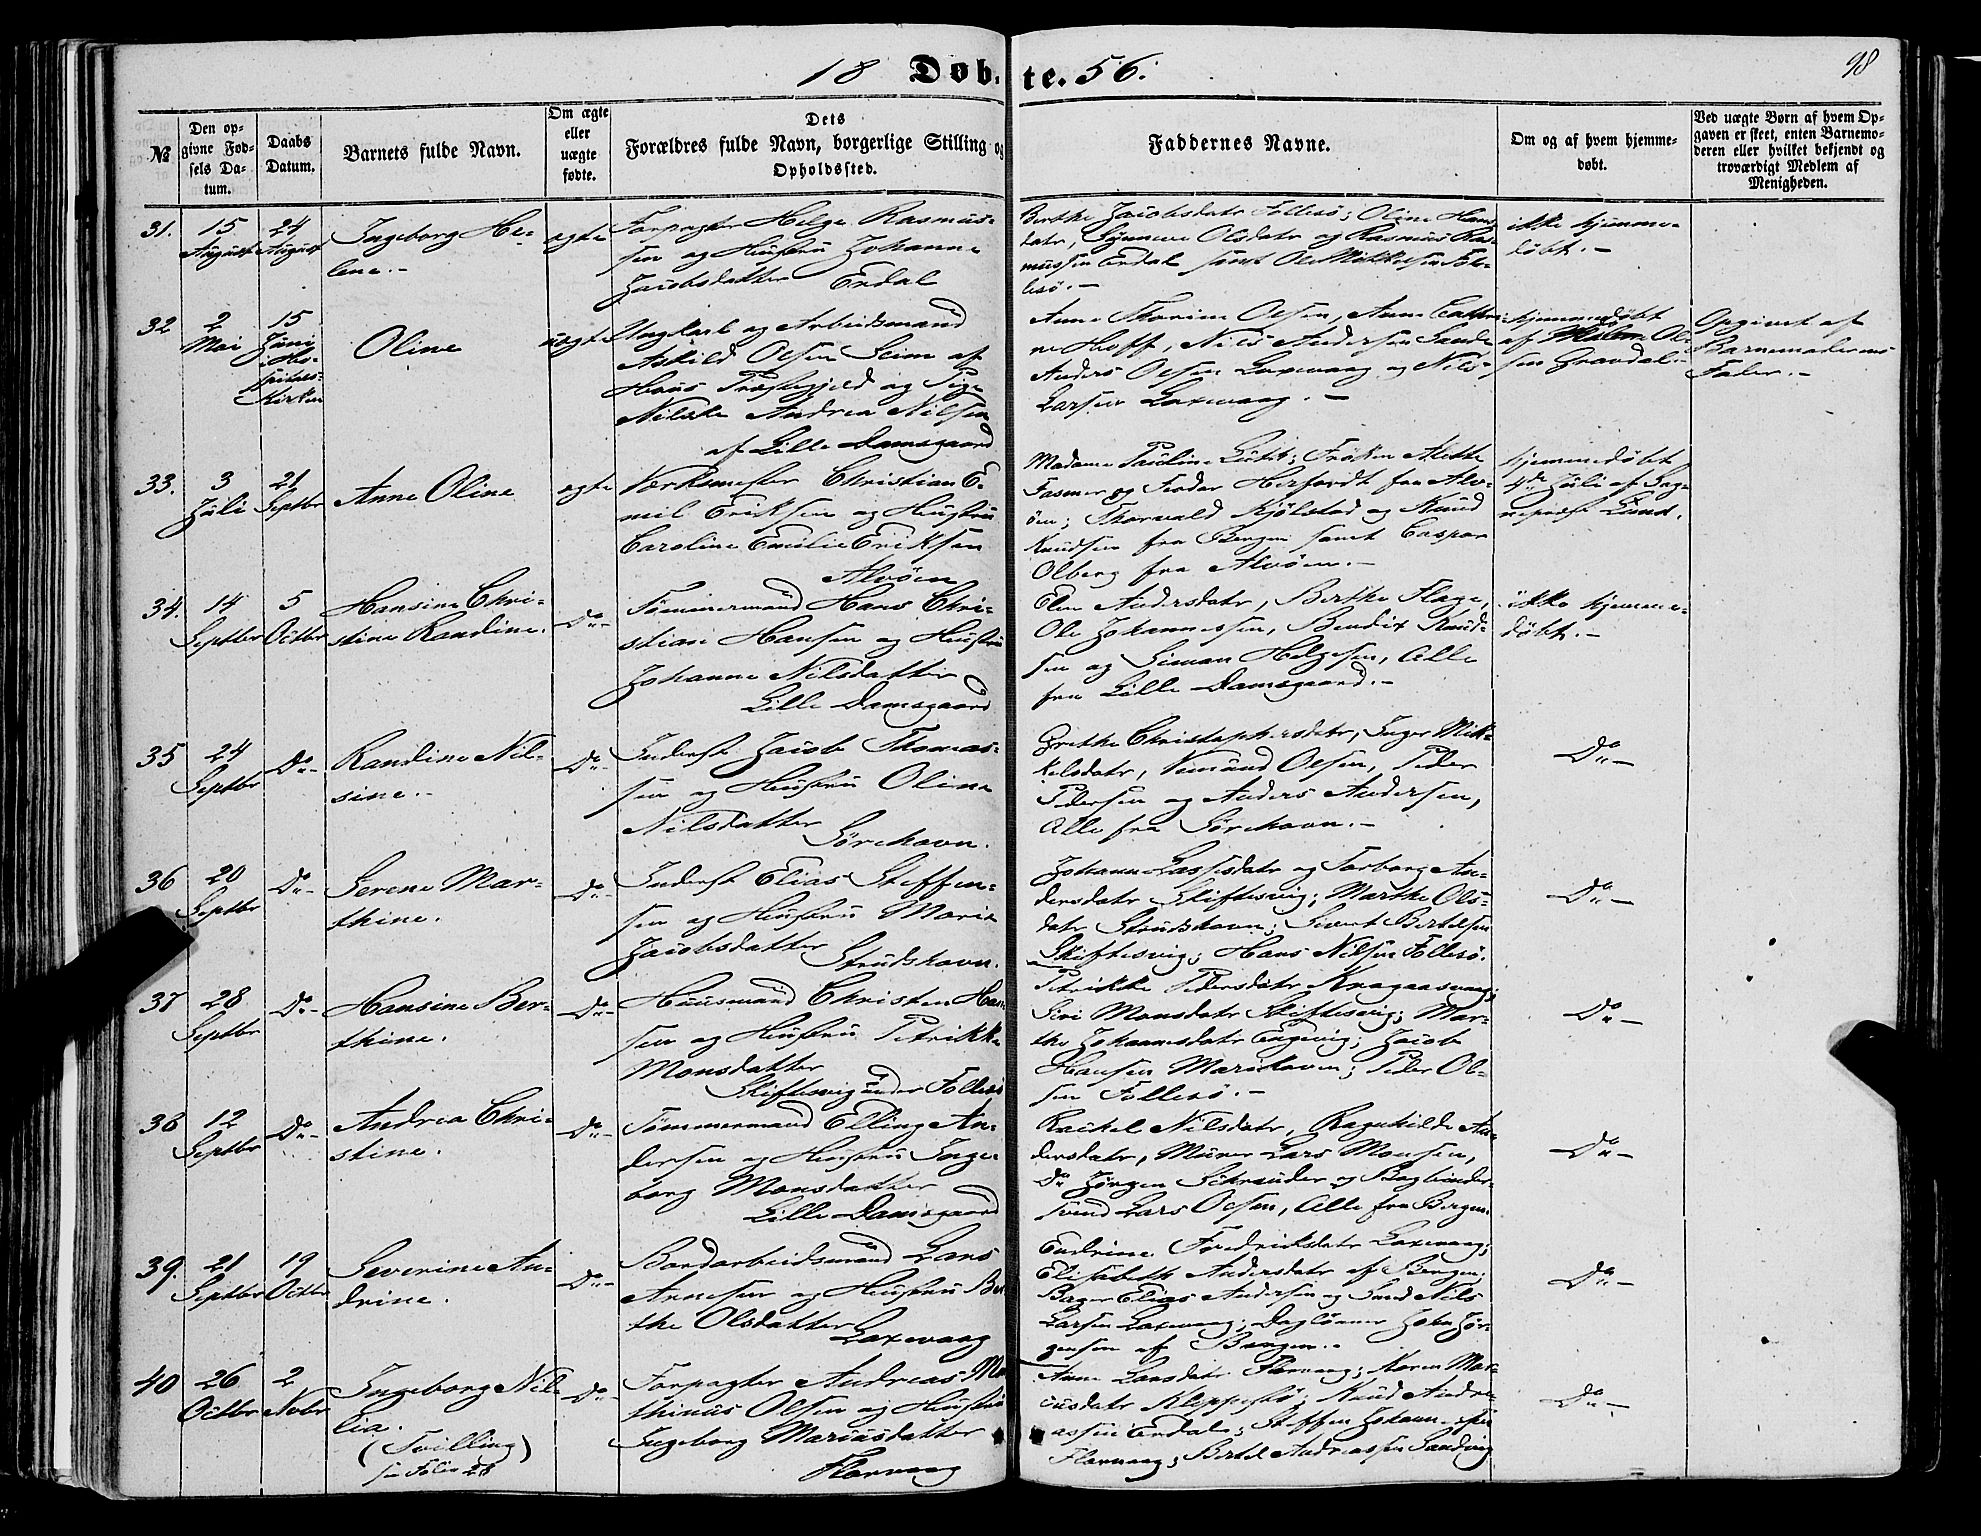 98
18 Døbte. 56.
№
Den op-
givne Fød-
sels Da-
tum.
Daabs
Datum.
Barnets fulde Navn.
Om ægte
eller
uægte
fødte.
Dets
Forældres fulde Navn, borgerlige Stilling og
Opholdssted.
Faddernes Navne.
Om og af hvem hjemme-
døbt.
Ved uægte Børn af hvem Op-
gaven er skeet, enten Barnemo-
deren eller hvilket bekjendt og
troværdigt Medlem af
Menigheden.
31.
15
August
24
August
Ingeborg He-
lene.-
ægte
Forpagter Helge Rasmus-
sen og Hustru Johanne
Jacobsdatter Erdal
Berthe Jacobsdatr Follesø; Oline Hans
datr, Synneve Olsdatr og Rasmus Ras-
mussen Erdal samt Ole Mikkelsen Fol-
lesø.-
ikke hjemme-
døbt.-
32
2
Mai
15
Juni
i Ho-
spitals-
Kirken
Oline
uægte
Ungkarl og Arbeidsmand
Askild Olsen Seim af
Hous Præstegjeld og Pige
Nilske Andrea Nilsen
af Lille Damsgaard
Anne Thorine Olsen, Anne Cathri-
ne Hoff, Nils Andersen Sande
Anders Olsen Laxevaag og Nils
Larsen Laxevaag.-
hjemmedøbt
af Ole
sen Gravdal.-
Opgivet af
Barnemoderens
Fader.-
33.
3
Juli
21
Septbr
Anne Oline
ægte
Værksmester Christian E-
mil Eriksen og Hustru
Caroline Emilie Eriksen
Alvøen
Madame Pauline Frøken Alette
Fasmer og Peder Herfordt fra Alv-
øen; Thorvald Kjølstad og Knud
Knudsen fra Bergen samt Caspar
Olberg fra Alvøen.-
hjemmedøbt
4de Juli af Sog-
nepræst Lund.
34.
14
Septbr
5
Octbr
Hansine Chri-
stine Randine.
Do-
Tømmermand Hans Chri-
stian Hansen og Hustru
Johanne Nilsdatter
Lille Damsgaard
Elen Andersdatr, Berthe Flage,
Ole Johannessen, Bendix Knud-
sen og Simon Helgesen, Alle
fra Lille Damsgaard.-
ikke hjemme-
døbt.-
35
24
Septbr
Do-
Randine Nil-
sine.-
Do-
Inderst Jacob Thomas-
sen og Hustru Oline
Nilsdatter
Sørehavn.
Grethe Christophersdatr, Inger Mik-
kelsdatr, Vemund Olsen, Peder
Pedersen og Anders Andersen,
Alle fra Sørehavn.-
Do-
36
20
Septbr
Do-
Serene Mar-
thine.
Do-
Inderst Elias Steffen-
sen og Hustru Marie
Jacobsdatter
Strudshavn.
Johanne Lassesdatr og Torborg An-
dersdatr Skiftesvig; Marthe Ols-
datr Strudshavn; Sivert Bertelsen
Skiftesvig; Hans Nilsen Follesø.
Do-
37
28
Septbr
Do-
Hansine Ber-
thine.
Do-
Huusmand Christen Han-
sen og Hustru Petrikke
Monsdatter
Skiftesvig under Follesø
Petrikke Pedersdatr Kragaasvaag;
Siri Monsdatr Skiftesvig; Mar-
the Johannesdatr Engevig; Jacob
Hansen Marikoven; Peder Ol-
sen Follesø.-
Do-
38
12
Septbr
Do-
Andrea Chri-
stine.
Do-
Tømmermand Elling An-
dersen og Hustru Inge-
borg Monsdatter
Lille Damsgaard
Rachel Nilsdatr, Ragnhilde An-
dersdatr, Murer Lars Monsen,
Do Jørgen Schreuder og Bogbinder-
svend Lars Olsen, Alle fra Bergen.
Do-
39.
21
Septbr
19
Octbr
Severine An-
drine.
Do-
Bordarbeidsmand Lars
Arnesen og Hustru Ber
the Olsdatter
Laxevaag
Endrine Fredriksdatr Laxevaag;
Elisabeth Andersdatr af Bergen;
Bager Elias Andersen og Svend Nils
Larsen Laxevaag; Daglønner John Jør-
gensen af Bergen.-
Do-
40
26
Octbr
2
Novbr
Ingeborg Nil
lia.
(Tvilling)
see Folio 28
Do-
Forpagter Andreas Ma
thinus Olsen og Hustru
Ingeborg Mariusdatter
Florvaag
Anne Larsdatr Florvaag; Karen Mar-
iusdatr Kleppestø; Knud Andre-
assen Erdal; Steffen Johannessen
Florvaag; Bertel Andreassen Sandvig
Do-